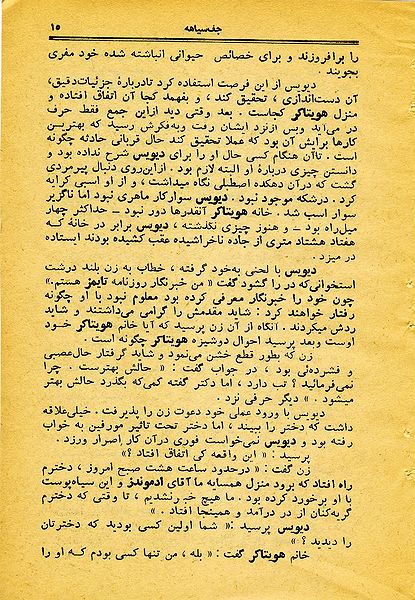 جغد سیاه
۱۵
را برافروزند و برای خصائص حیوانی انباشته شده خود مفری
بجویند .
دیویس از این فرصت استفاده کرد تادربارهٔ جزئیات‌دقیق،
آن دست‌اندازی ، تحقیق کند ، و بفهمد کجا آن اتفاق افتاده و
منزل هویتاکر کجاست . بعد وقتی دید ازاین جمع فقط حرف
در می‌آید وبس ازنزد ایشان رفت وبه‌فکرش رسید که بهترین
کارها برایش آن بود که عملا تحقیق کند حال قربانی حادثه چگونه
است . تاآن هنگام کسی حال او را برای دیویس شرح نداده بود و
دانستن چیزی دربارهٔ او البته لازم بود . ازاین‌روی دنبال پیرمردی
گشت که درآن دهکده اصطبلی نگاه میداشت ، و از او اسبی کرایه
کرد . درشکه موجود نبود . دیویس سوارکار ماهری نبود اما ناگزیر
سوار اسب شد . خانه هویتاکر آنقدرها دور نبود ـ حداکثر چهار
میل‌راه بود ـ و هنوز چیزی نگذشته ، دیویس برابر در خانهٔ که
هفتاد هشتاد متری از جاده ناخراشیده عقب کشیده بودند ایستاده
در میزد .
دیویس با لحنی به‌خود گرفته ، خطاب به زن بلند درشت
استخوانی‌که در را گشود گفت « من خبرنگار روزنامه تایمز هستم.»
چون خود را خبرنگار معرفی کرده بود معلوم نبود با او چگونه
رفتار خواهند کرد : شاید مقدمش را گرامی می‌داشتند و شاید
ردش میکردند . آنگاه از آن زن پرسید که آیا خانم هویتاکر خود
اوست وبعد پرسید احوال دوشیزه هویتاکر چگونه است .
زن که بطور قطع خشن می‌نمود و شاید گرفتار حال‌عصبی
و فشرده‌ئی بود ، در جواب گفت : « حالش بهترست . چرا
نمی‌فرمائید ؟ تب دارد ، اما دکتر گفته کمی‌که بگذرد حالش بهتر
میشود . » دیگر حرفی نزد .
دیویس با ورود عملی خود دعوت زن را پذیرفت . خیلی‌علاقه
داشت که دختر را ببیند ، اما دختر تحت تاثیر مورفین به خواب
رفته بود و دیویس نمی‌خواست فوری درآن کار اصرار ورزد .
پرسید : « این واقعه کی اتفاق افتاد ؟»
زن گفت : « درحدود ساعت هشت صبح امروز ، دخترم
راه افتاد که برود منزل همسایه ما آقای ادموندز و این سیاه‌پوست
با او برخورد کرده بود . ما هیچ خبر نشدیم ، تا وقتی که دخترم
گریه‌کنان از در درآمد و همینجا افتاد . »
دیویس پرسید :« شما اولین کسی بودید که دخترتان
را دیدید ؟ »
خانم هویتاکر گفت : « بله ، من تنها کسی بودم که او را